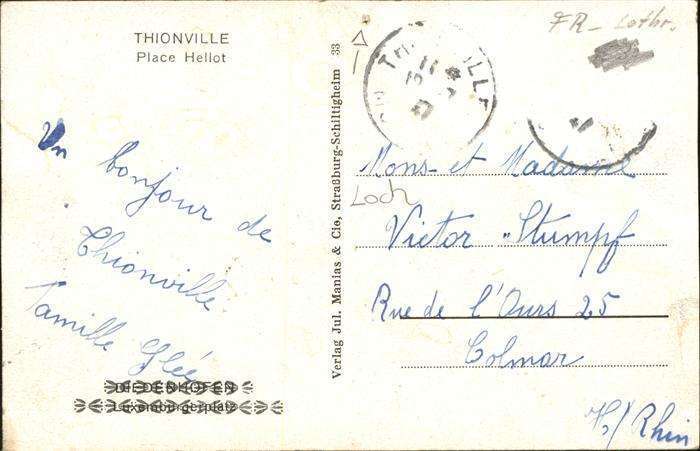 THIONVILLE
Place Hellot
Un bonjour de
Thionville
Famille
DIEDENHOFEN
Luxemburgerplatz
Verlag Jul. Manias & Cie, Straßburg-Schiltigheim 33
FR - Lothr.
Mons et Madame
Loch
Victor Stumpf
Rue de l'Ours 25
Colmar
H/Rhin